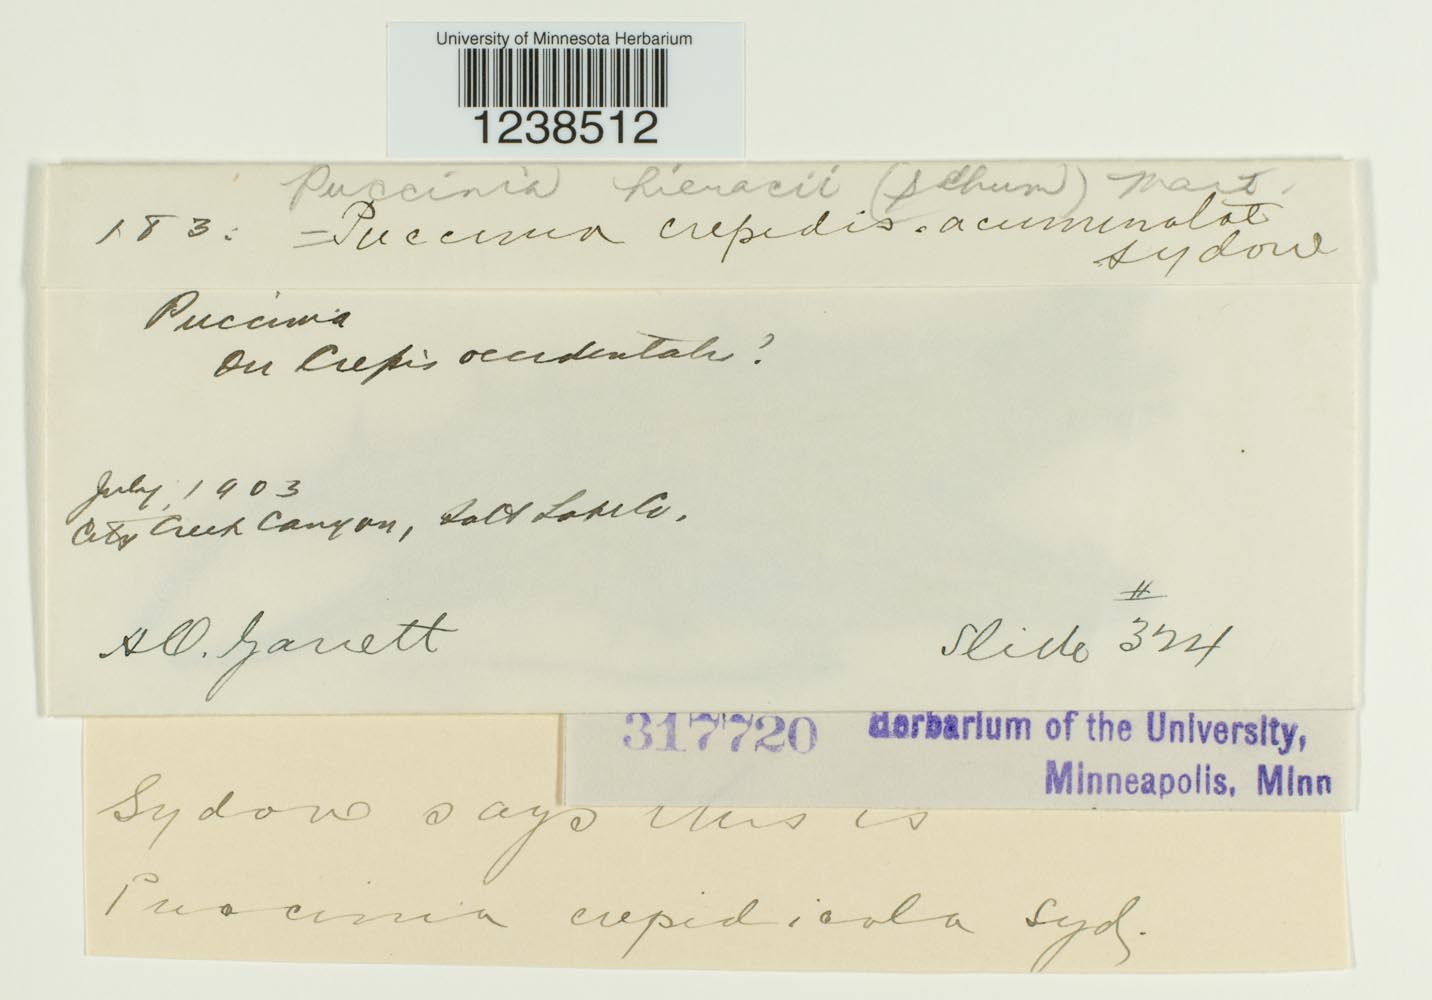 University of Minnesota Herbarium
1238512
Puccinia hieracii (Schum) Mart.
183. =Puccinia crepidis-acuminatae
Sydow
Puccinia
On Crepis occidentalis?
July, 1903
City Creek Canyon, Salt Lake Co.
A.O. Garrett
Slide #324
317720 Herbarium of the University,
Minneapolis, Minn
Sydow says this is
Puccinia crepidicola Syd.